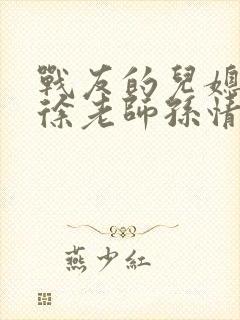 戰友的兒媳
徐老師孫情
燕少紅